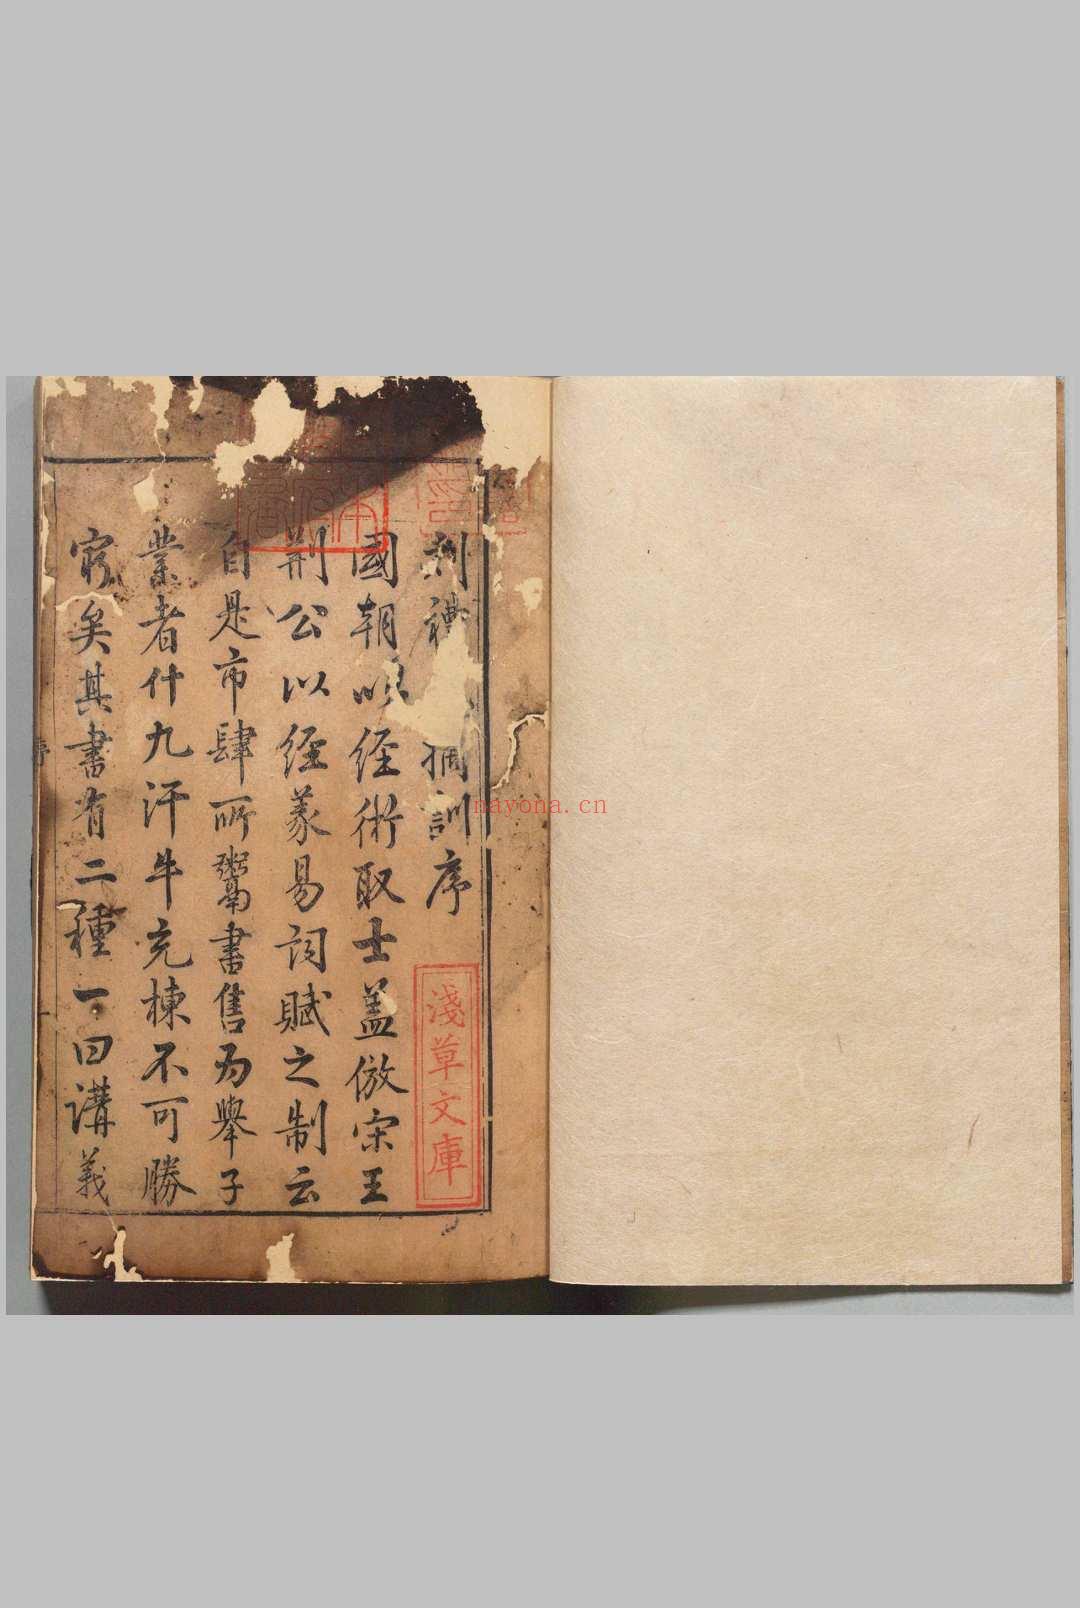 刻禮摘訓序
國朝以經術取士蓋倣宋王
荆公以經義易詞賦之制云
自是市肆所鬻書售為舉子
業者什九汗牛充棟不可勝
窮矣其書有二種一曰講義
淺草文庫
nayona.cn